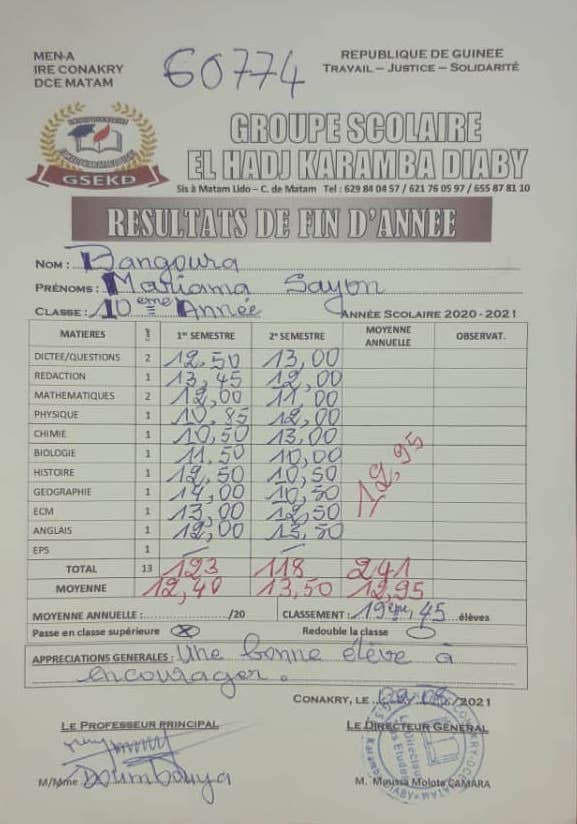 MEN-A
IRE CONAKRY
DCE MATAM
60774
REPUBLIQUE DE GUINEE
TRAVAIL – JUSTICE – SOLIDARITÉ
GSEKD
GROUPE SCOLAIRE
EL HADJ KARAMBA DIABY
Sis à Matam Lido – C. de Matam Tel : 629 84 04 57 / 621 76 05 97 / 655 87 81 10
RESULTATS DE FIN D'ANNEE
NOM : Bangoura
PRÉNOMS : Mariama Sayon
CLASSE : 10ème Année ANNÉE SCOLAIRE 2020 - 2021
MATIERES 1er SEMESTRE 2e SEMESTRE MOYENNE ANNUELLE OBSERVAT.
DICTEE/QUESTIONS 2 12,50 13,00
REDACTION 1 13,45 12,00
MATHEMATIQUES 2 12,00 11,00
PHYSIQUE 1 10,85 12,00
CHIMIE 1 10,50 13,00
BIOLOGIE 1 11,50 10,00
HISTOIRE 1 12,50 10,50
GEOGRAPHIE 1 14,00 10,50
ECM 1 13,00 12,50
ANGLAIS 1 12,00 13,50
EPS 1
12,95
TOTAL 13 123 118 241
MOYENNE 12,40 13,50 12,95
MOYENNE ANNUELLE :......................../20 CLASSEMENT : 19ème, 45 élèves
Passe en classe supérieure Redouble la classe
APPRECIATIONS GENERALES : Une bonne élève à
encourager.
CONAKRY, LE /2021
LE PROFESSEUR PRINCIPAL LE DIRECTEUR GENERAL
M/Mme Doumbouya M. Moussa Molota CAMARA